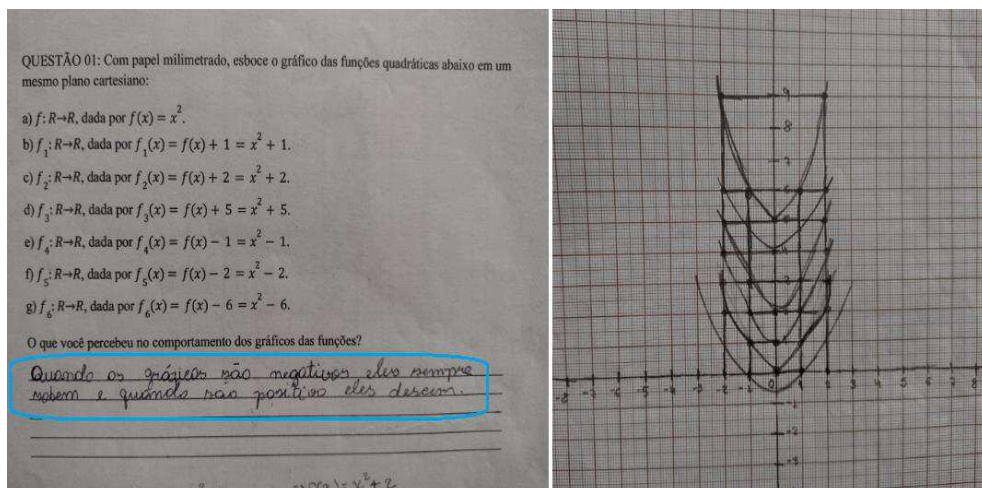 QUESTÃO 01: Com papel milimetrado, esboce o gráfico das funções quadráticas abaixo em um
mesmo plano cartesiano:
a) f: R→R, dada por f(x) = x².
b) f₁: R→R, dada por f₁(x) = f(x) + 1 = x² + 1.
c) f₂: R→R, dada por f₂(x) = f(x) + 2 = x² + 2.
d) f₃: R→R, dada por f₃(x) = f(x) + 5 = x² + 5.
e) f₄: R→R, dada por f₄(x) = f(x) − 1 = x² − 1.
f) f₅: R→R, dada por f₅(x) = f(x) − 2 = x² − 2.
g) f₆: R→R, dada por f₆(x) = f(x) − 6 = x² − 6.
O que você percebeu no comportamento dos gráficos das funções?
Quando os gráficos são negativos eles sempre
sobem e quando são positivo eles descem.
9
8
7